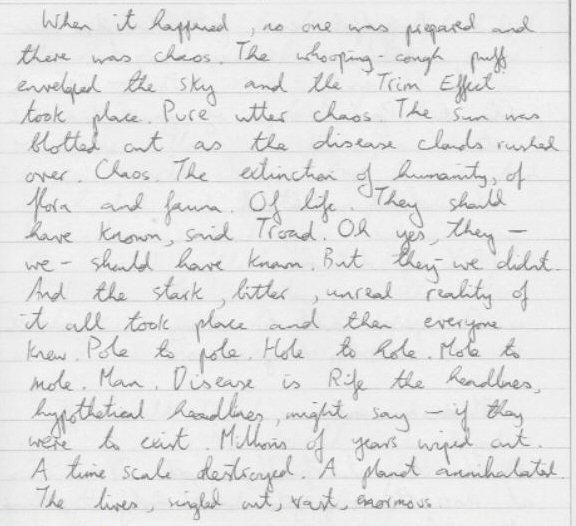 When it happened, no one was prepared and
there was chaos. The whooping-cough puff
enveloped the sky and the Trim Effect
took place. Pure utter chaos. The sun was
blotted out as the disease clouds rushed
over. Chaos. The extinction of humanity, of
flora and fauna. Of life. They should
have known, said Troad. Oh yes, they -
we - should have known. But they-we didnt.
And the stark, bitter, unreal reality of
it all took place and then everyone
knew. Pole to pole. Hole to hole. Mole to
mole. Man. Disease is Rife the headlines,
hypothetical headlines, might say - if they
were to exist. Millions of years wiped out.
A time scale destroyed. A planet annihilated.
The lives, singled out, vast, enormous.